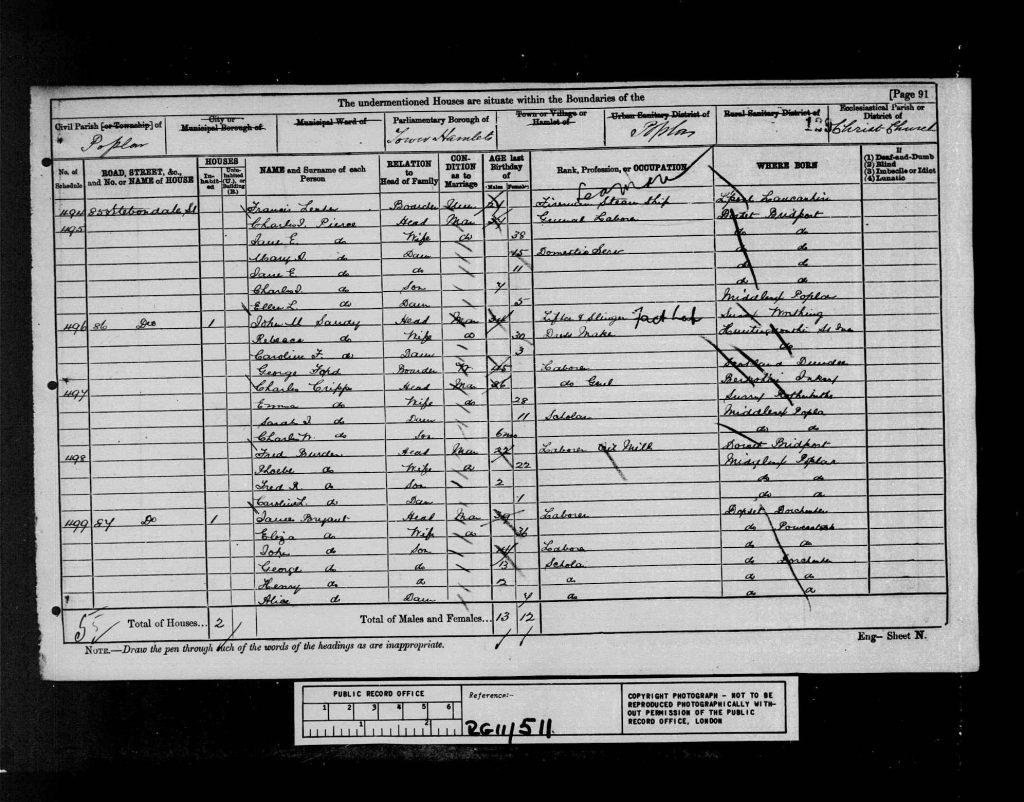 [Page 91
The undermentioned Houses are situate within the Boundaries of the
Civil Parish [or Township] of City or Municipal Borough of Municipal Ward of Parliamentary Borough of Town or Village or Hamlet of Urban Sanitary District of Rural Sanitary District of Ecclesiastical Parish or District of
Poplar Tower Hamlets Poplar Christ Church
No. of Schedule ROAD, STREET, &c., and No. or NAME of HOUSE HOUSES Inhabited Uninhabited (U.), or Building (B.) NAME and Surname of each Person RELATION to Head of Family CONDITION as to Marriage AGE last Birthday of Males Females Rank, Profession, or OCCUPATION WHERE BORN If (1) Deaf-and-Dumb (2) Blind (3) Imbecile or Idiot (4) Lunatic
494 85 Stebondale St Francis Boarder Unm 24 Fireman Steam Ship
495 Charles J. Pierce Head Mar General Labore Dorset Bridport
Jane E. do Wife do 38 do do
Mary do Daur 15 Domestic Serv do do
Jane E. do do 11 do do
Charles J. do Son 7 do do
Ellen L. do Daur 5 Middlesex Poplar
496 86 Do 1 John M Head Mar Lifter & Slinger Worthing
Rebecca do Wife do 30 Dress Make
Caroline F. do Daur 3 do
George Ford Boarder 45 Labore Scotland Dundee
497 Charles Cripps Head Mar 26 do Genl
Emma do Wife do 28 Surrey Rotherhithe
Sarah J. do Daur 11 Scholar Middlesex Popla
Charles W. do Son 6mo do do
498 Fred Burden Head Mar 22 Laborer Oil Mill Dorset Bridport
Phoebe do Wife do 22 Middlesex Poplar
Fred R. do Son 2 do do
Caroline L. do Daur 1 do do
499 87 Do 1 James Bryant Head Mar 39 Laborer Dorset Dorchester
Eliza do Wife do 36 do Powerstock
John do Son 14 Labore do do
George do do 13 Schola do Dorchester
Henry do do 12 do do do
Alice do Daur 4 do do do
Total of Houses... 2 Total of Males and Females... 13 12
NOTE.—Draw the pen through such of the words of the headings as are inappropriate.
Eng- Sheet N.
PUBLIC RECORD OFFICE
1 2 3 4 5 6
1 2
Reference:-
RG11/511
COPYRIGHT PHOTOGRAPH - NOT TO BE
REPRODUCED PHOTOGRAPHICALLY WITH-
OUT PERMISSION OF THE PUBLIC
RECORD OFFICE, LONDON